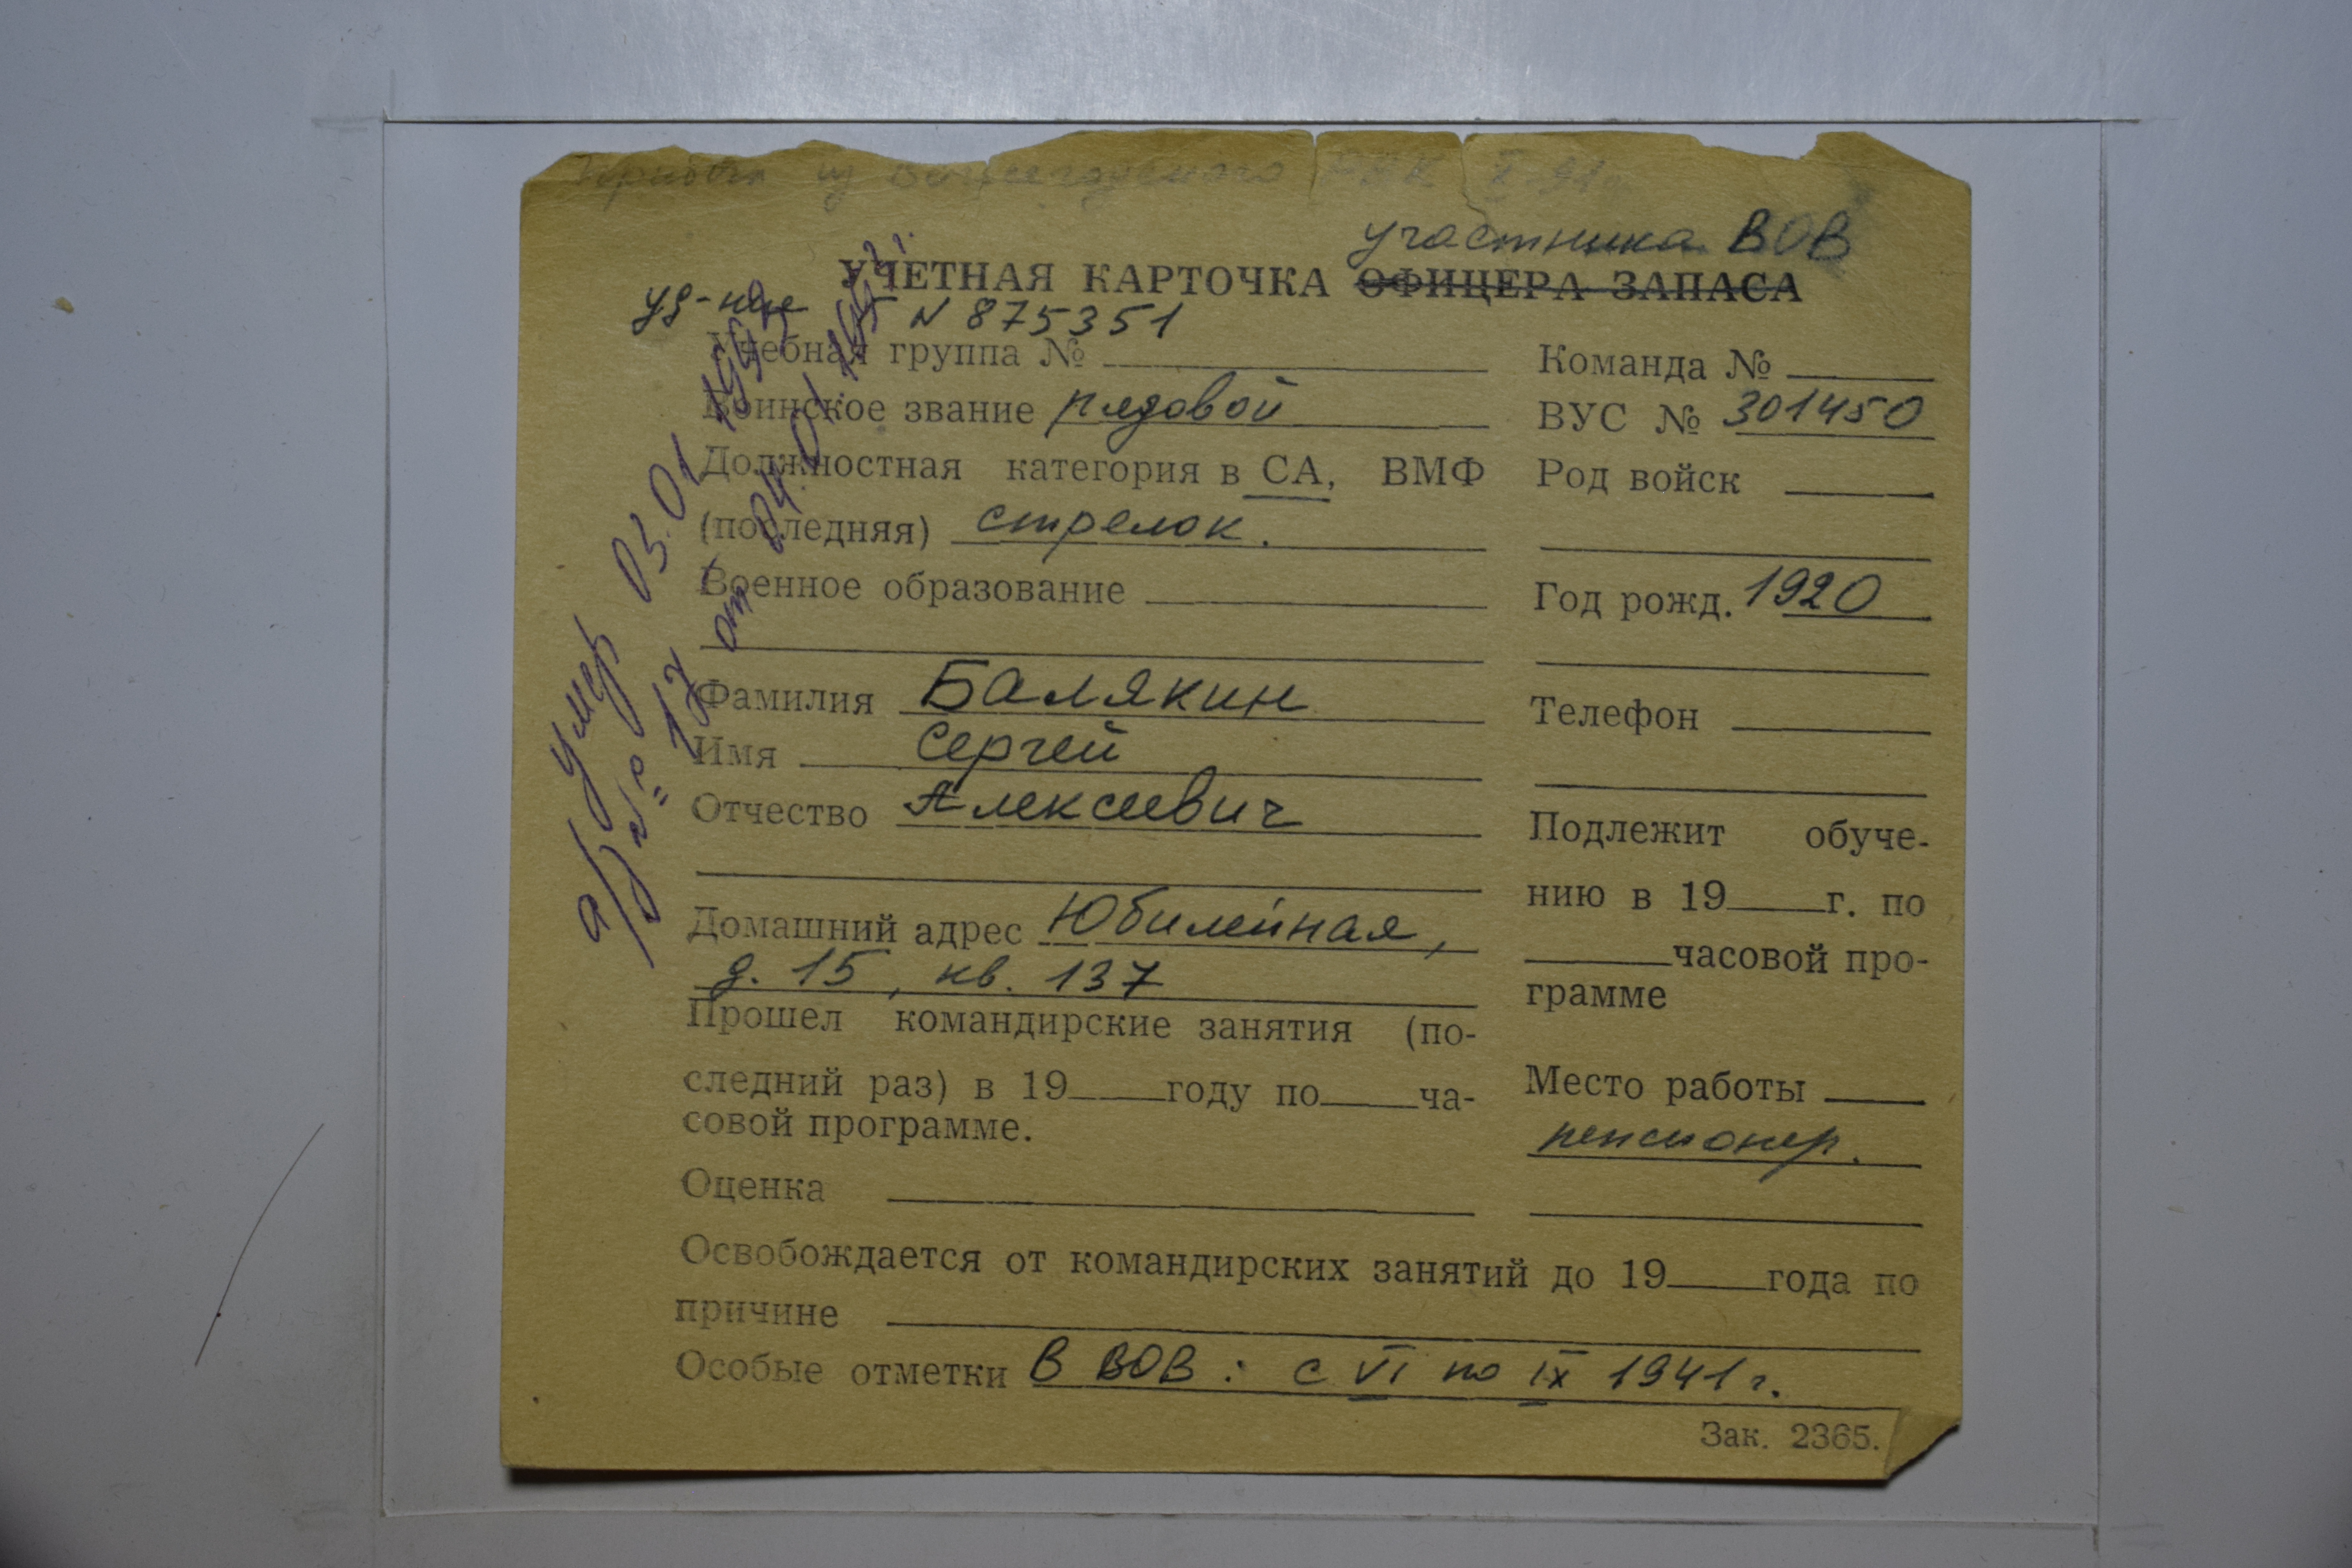 Прибыл из РВК
участника ВОВ
УЧЕТНАЯ КАРТОЧКА ОФИЦЕРА ЗАПАСА
уд-ние N 875351
Учебная группа №
Команда №
Воинское звание рядовой
ВУС № 301450
Должностная категория в СА, ВМФ
Род войск
(последняя) стрелок.
Военное образование
Год рожд. 1920
Фамилия Балякин
Телефон
Имя Сергей
Отчество Алексеевич
Подлежит обуче-
нию в 19 г. по
часовой про-
грамме
Домашний адрес Юбилейная,
д. 15, кв. 137
Прошел командирские занятия (по-
следний раз) в 19 году по ча-
совой программе.
Место работы
пенсионер.
Оценка
Освобождается от командирских занятий до 19 года по
причине
Особые отметки В ВОВ: с VI по IX 1941 г.
Зак. 2365.
умер 03.01
№ 17 от 04.01